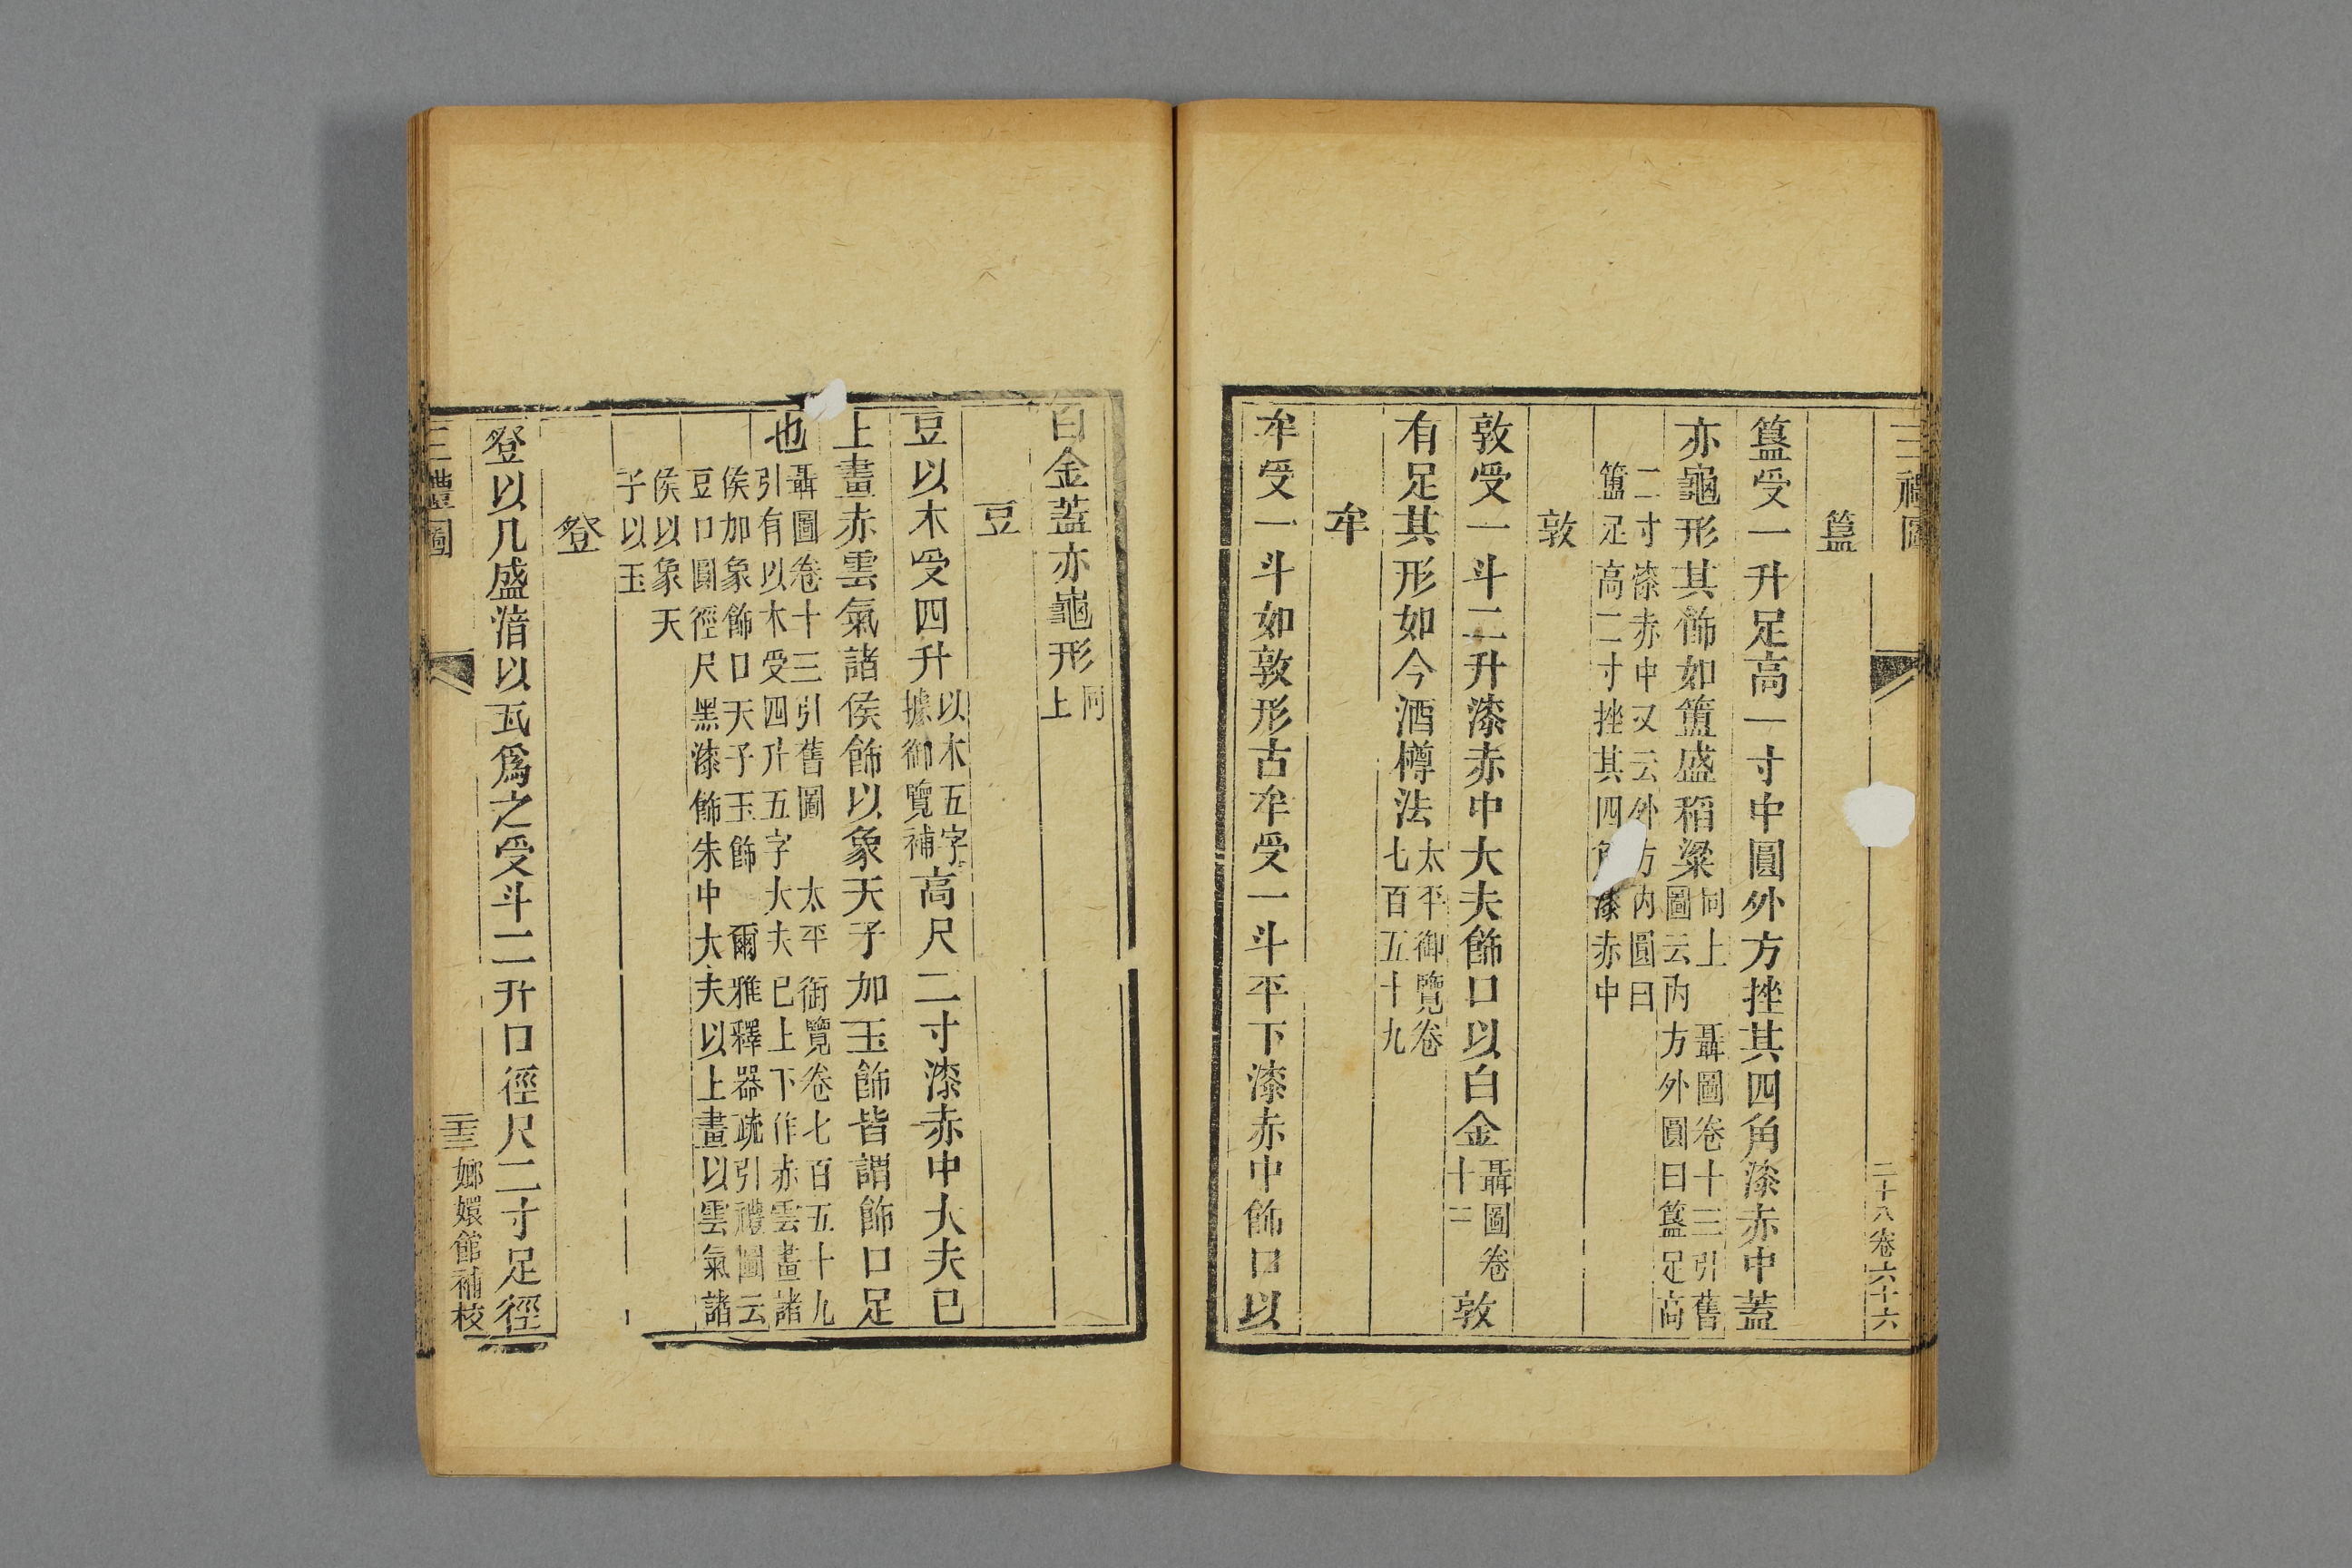 三禮圖
二十八卷六十六
簋
簋受一升足高一寸中圓外方挫其四角漆赤中蓋
亦龜形其飾如簠盛稻粱同上 聶圖卷十三引舊
圖云內方外圓曰簋足高
二寸漆赤中又云外方內圓曰
簠足高二寸挫其四漆赤中
敦
敦受一斗二升漆赤中大夫飾口以白金聶圖卷
十二敦
有足其形如今酒樽法太平御覽卷
七百五十九
牟
牟受一斗如敦形古牟受一斗平下漆赤中飾口以
白金蓋亦龜形同
上
豆
豆以木受四升以木五字
據御覽補高尺二寸漆赤中大夫已
上畫赤雲氣諸侯飾以象天子加玉飾皆謂飾口足
也聶圖卷十三引舊圖 太平御覽卷七百五十九
引有以木受四升五字大夫已上下作赤雲畫諸
侯加象飾口天子玉飾 爾雅釋器疏引禮圖云
豆口圓徑尺黑漆飾朱中大夫以上畫以雲氣諸
侯以象天
子以玉
登
登以几盛湆以瓦爲之受斗二升口徑尺二寸足徑
三禮圖
嫏嬛館補校